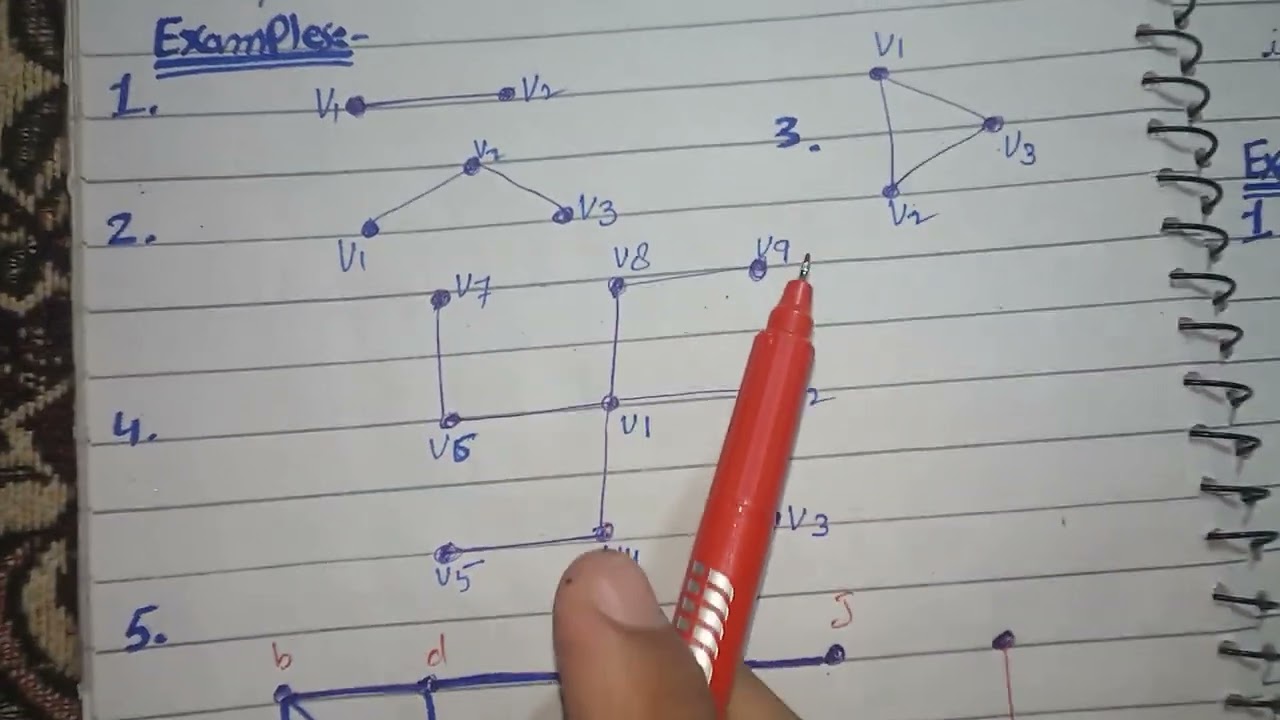 Examples:-
1. V1 V2
V1
3.
V3
V2
V2
2. V1 V3
V8 V9
V7
4. V6 V1 2
V3
V5
5.
b d J
Ex
1